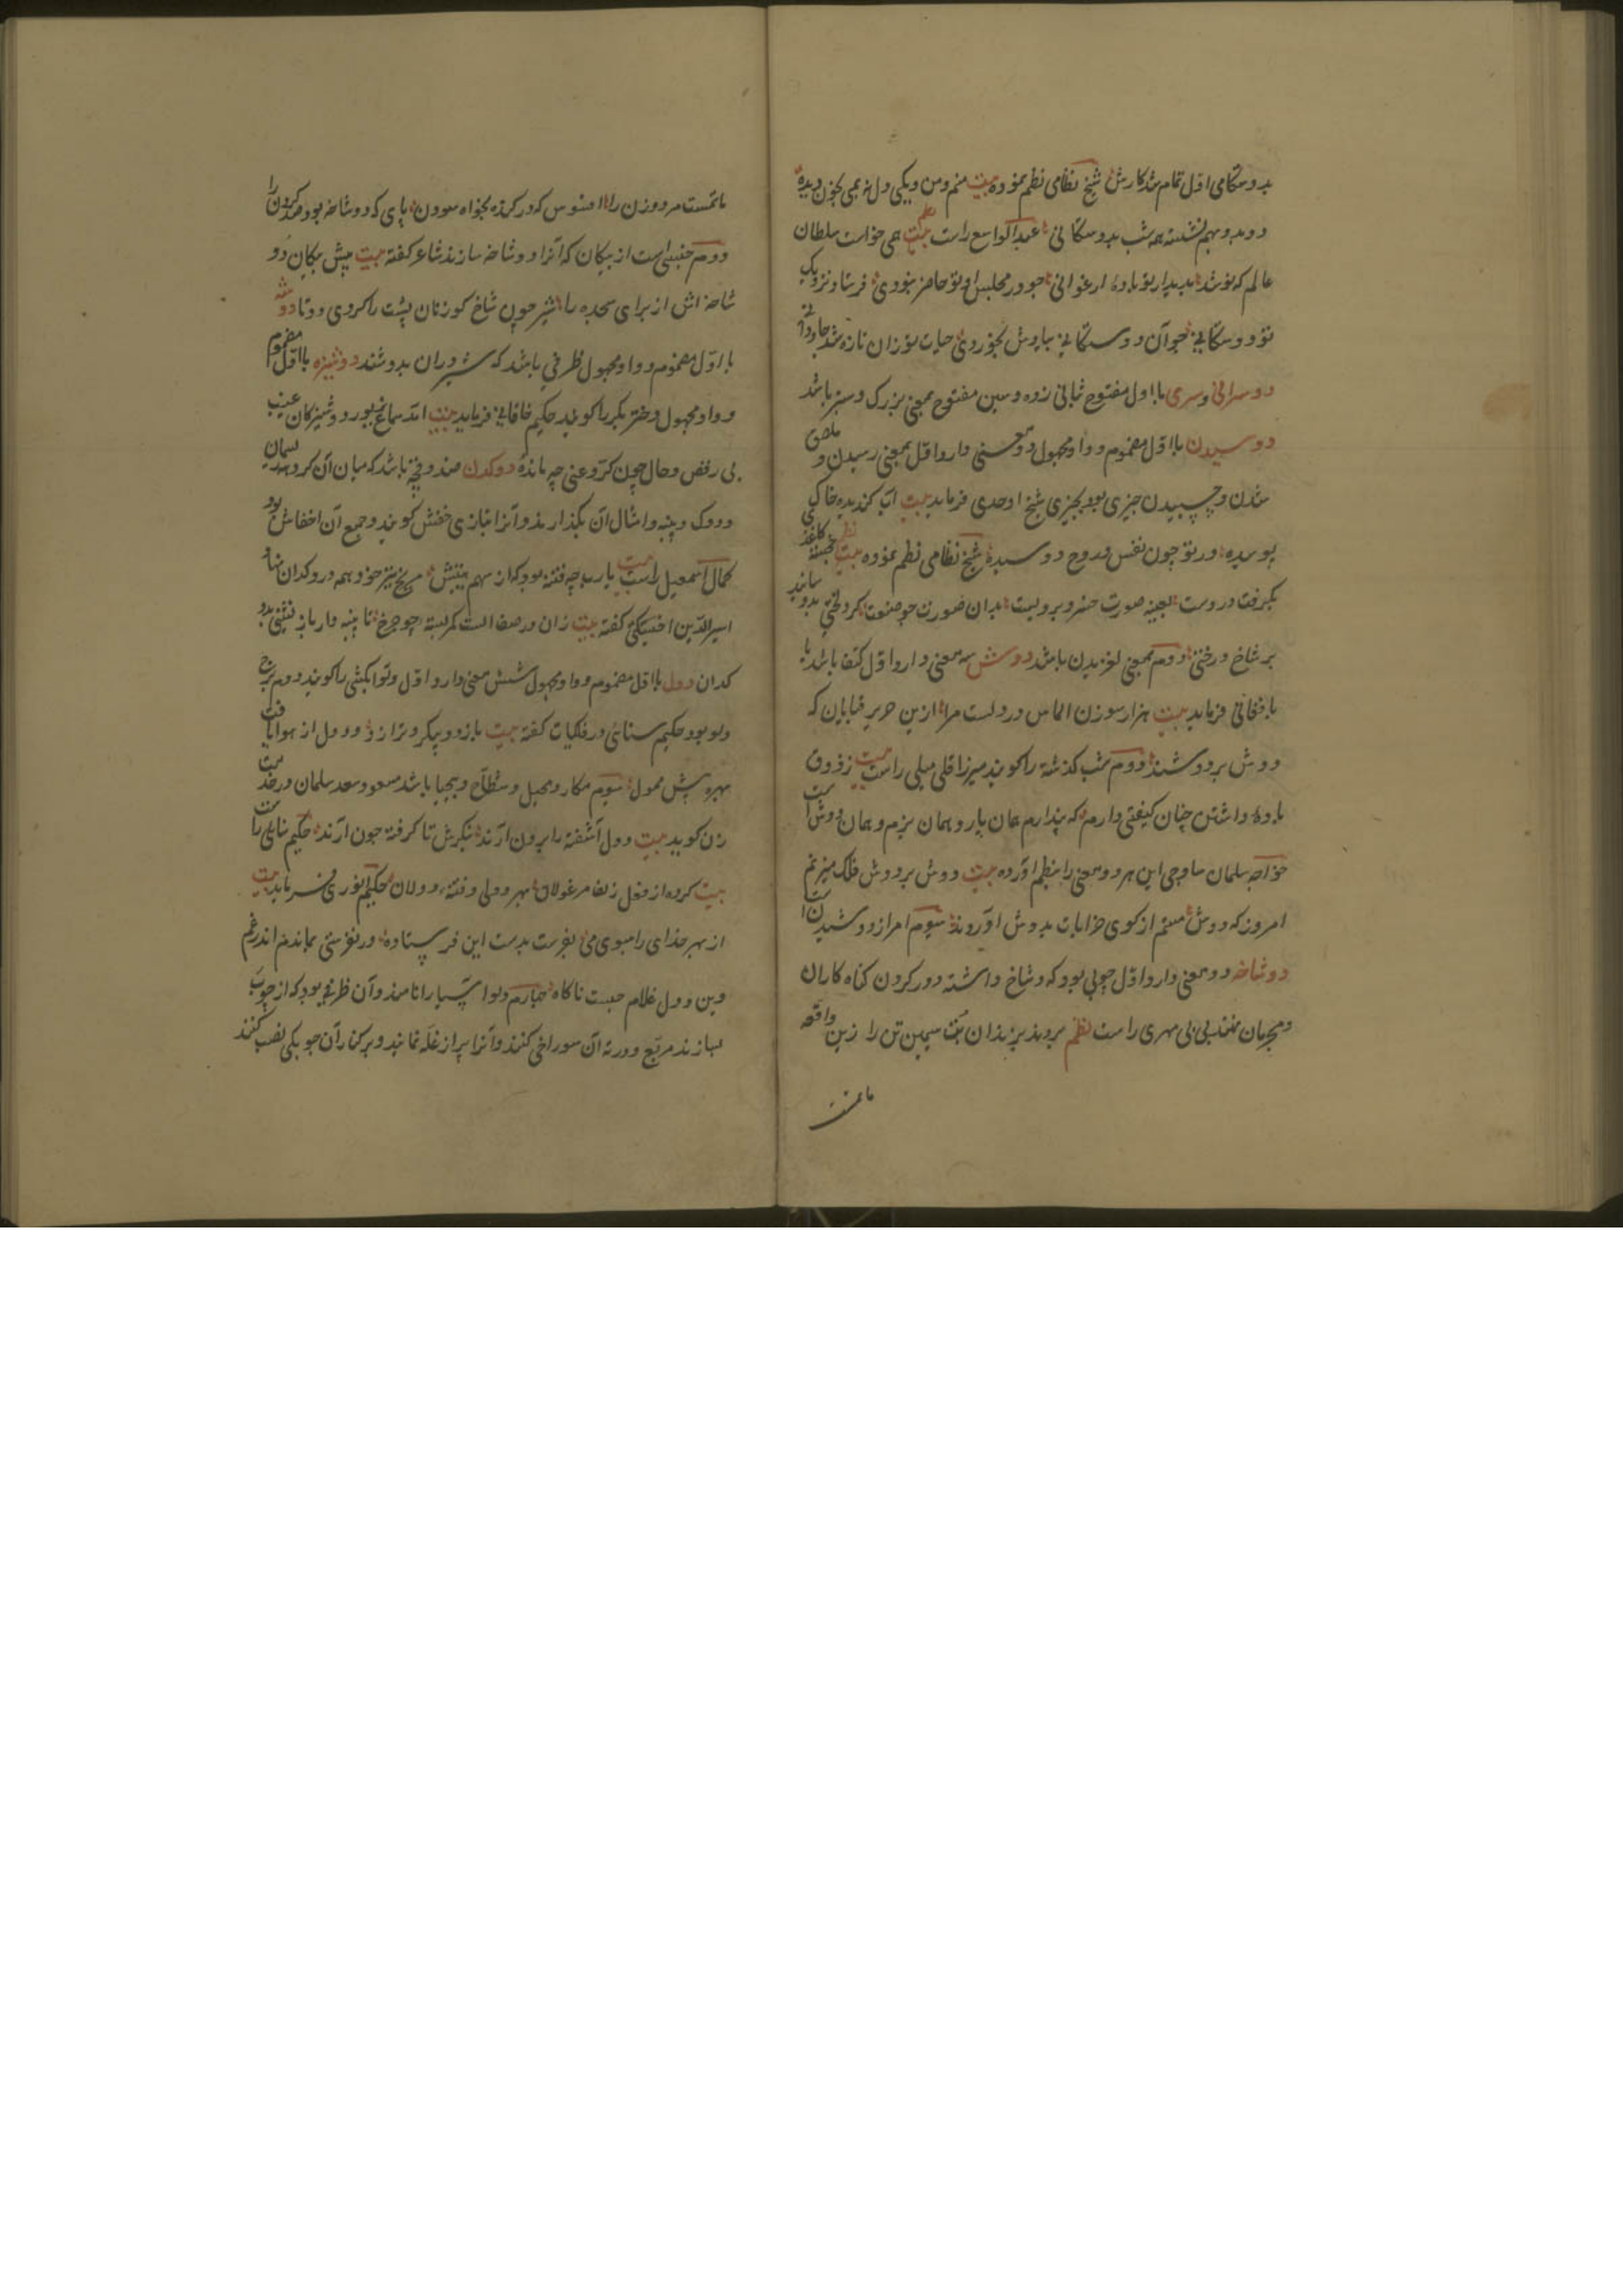 بدوستکامی اول تمام شد کارش شیخ نظامی نظم نموده بیت منم ومن ویکی دل نه بمی بخون دیده
دو بدو بهم نشسته همه شب بدوستکانی عبدالواسع راست نظم بیت همی خواست سلطان
عالم که نوشد بدیدار تو بادهٔ ارغوانی چو در مجلس او تو حاضر نبودی فرستاد نزدیک
تو دوستکانی چو آن دوستکانی بیادش بخوردی حیات تو زان تازه شد جاودانی
دوسرانی وسری با اول مفتوح ثانی زده وسین مفتوح بمعنی بزرک وستبر باشد
دوسیدن با اول مضموم و واو مجهول دو معنی دارد اول بمعنی رسیدن و ملصق
شدن و چسپیدن چیزی بود بچیزی شیخ اوحدی فرماید بیت آب کندیده خاکی
پوسیده در تو چون نفس و روح دوسیده شیخ نظامی نظم نموده بیت نظم کاغذ
بکرفت در دست بعینه صورت خسرو برو بست بدان صورت چو صنعت کرد لختی بدوسانید
بر شاخ درختی دوم بمعنی لغزیدن باشد دوش سه معنی دارد اول کتف باشد بابا
بافغانی فرماید بیت هزار سوزن الماس در دلست مرا ازین حریر قبایان که
دوش بر دوشند دوم شب کذشته را کویند میرزا قلی میلی راست بیت ز ذوق
بادهٔ دانش چنان کیفتی دارم که پندارم همان یار و همان بزم و همان دوش است
خواجه سلمان ساوجی این هر دو معنی را بنظم آورده بیت دوش بر دوش فلک میزنم
امروز که دوش مستم از کوی خرابات بدوش آوردند سیوم امر از دوشیدن است
دوشاخه دو معنی دارد اول چوبی بود که دو شاخ داشته در کردن کناه کاران
ومجرمان نهند بی بی مهری راست نظم برزندان بت سیمین تن را زین واقعه
ماتمست
ماتمست مرد و زن را افسوس که در کنده بخواه سودن پای که دو شاخه بود کردن را
دوم جنسی است از پیکان که آنرا دو شاخه سازند شاعر کفته بیت پیش پیکان دو
شاخه اش از برای سجده را شیر چون شاخ کوزنان پشت را کردی دوتا دوشه
با اول مضموم و واو مجهول ظرفی باشد که شیر دران بدوشند دوشیزه با اول مضموم
و واو مجهول دختر بکر را کویند حکیم خاقانی فرماید بیت دوشیزکان غیب
بی رقص وحال چون کر وعنی چه مانده دوکدن صندوقچه باشد که میان آن کروهه ریسمان
ودوک و پنبه وامثال آن بکذارند وآنرا بتازی حفش کویند وجمع آن احفاش بود
کمال اسمعیل راست بیت یارب چه فتنه بود که از سهم هیبتش مریخ تیز خود همه در دوکدان نهاد
اسیرالدین اخسیکتی کفته بیت زان در صف است کمر بسته چو چرخ تا پنبه دار باز نشینی بدو
کدان دول با اول مضموم و واو مجهول شش معنی دارد اول دلو آبکشی را کویند دوم برج
دلو بود حکیم سنائی در فلکیات کفته بیت باز دو پیکر و ترازو دول از هوا یافت
بهره پیش ممول سیوم مکار ومحیل وشطاح وبیحیا باشد مسعود سعد سلمان در خدمت
زن کوید بیت دول آشفته را برون آرند بنکرش تا کرفته چون آرند حکیم سنائی راست
بیت کرده از فعل زلف مرغولان بهر دولی و فتنه دولان حکیم انوری فرماید بیت
از بهر خدای را سبوی می بفرست بدست این فرستاده ور نفرستی بماندم اندر غم
وین دول غلام حبست ناکاه چهارم دلو آسیا را نامند وآن ظرفی بود که از چوب
بسازند مربع ودر ته آن سوراخی کنند وآنرا پر از غله نمایند وبر کنار آن چوبکی نصب کنند